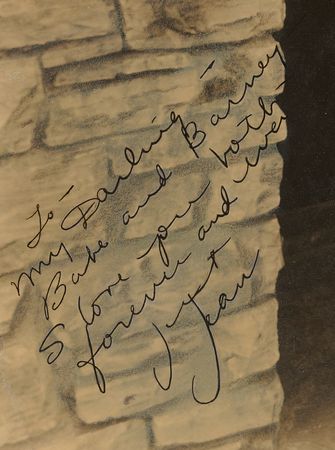 To-
My Darling
Babe and Barney
I love you both
forever and ever
Just
Jean